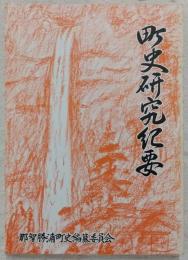 町史研究紀要
那智勝浦町史編纂委員会